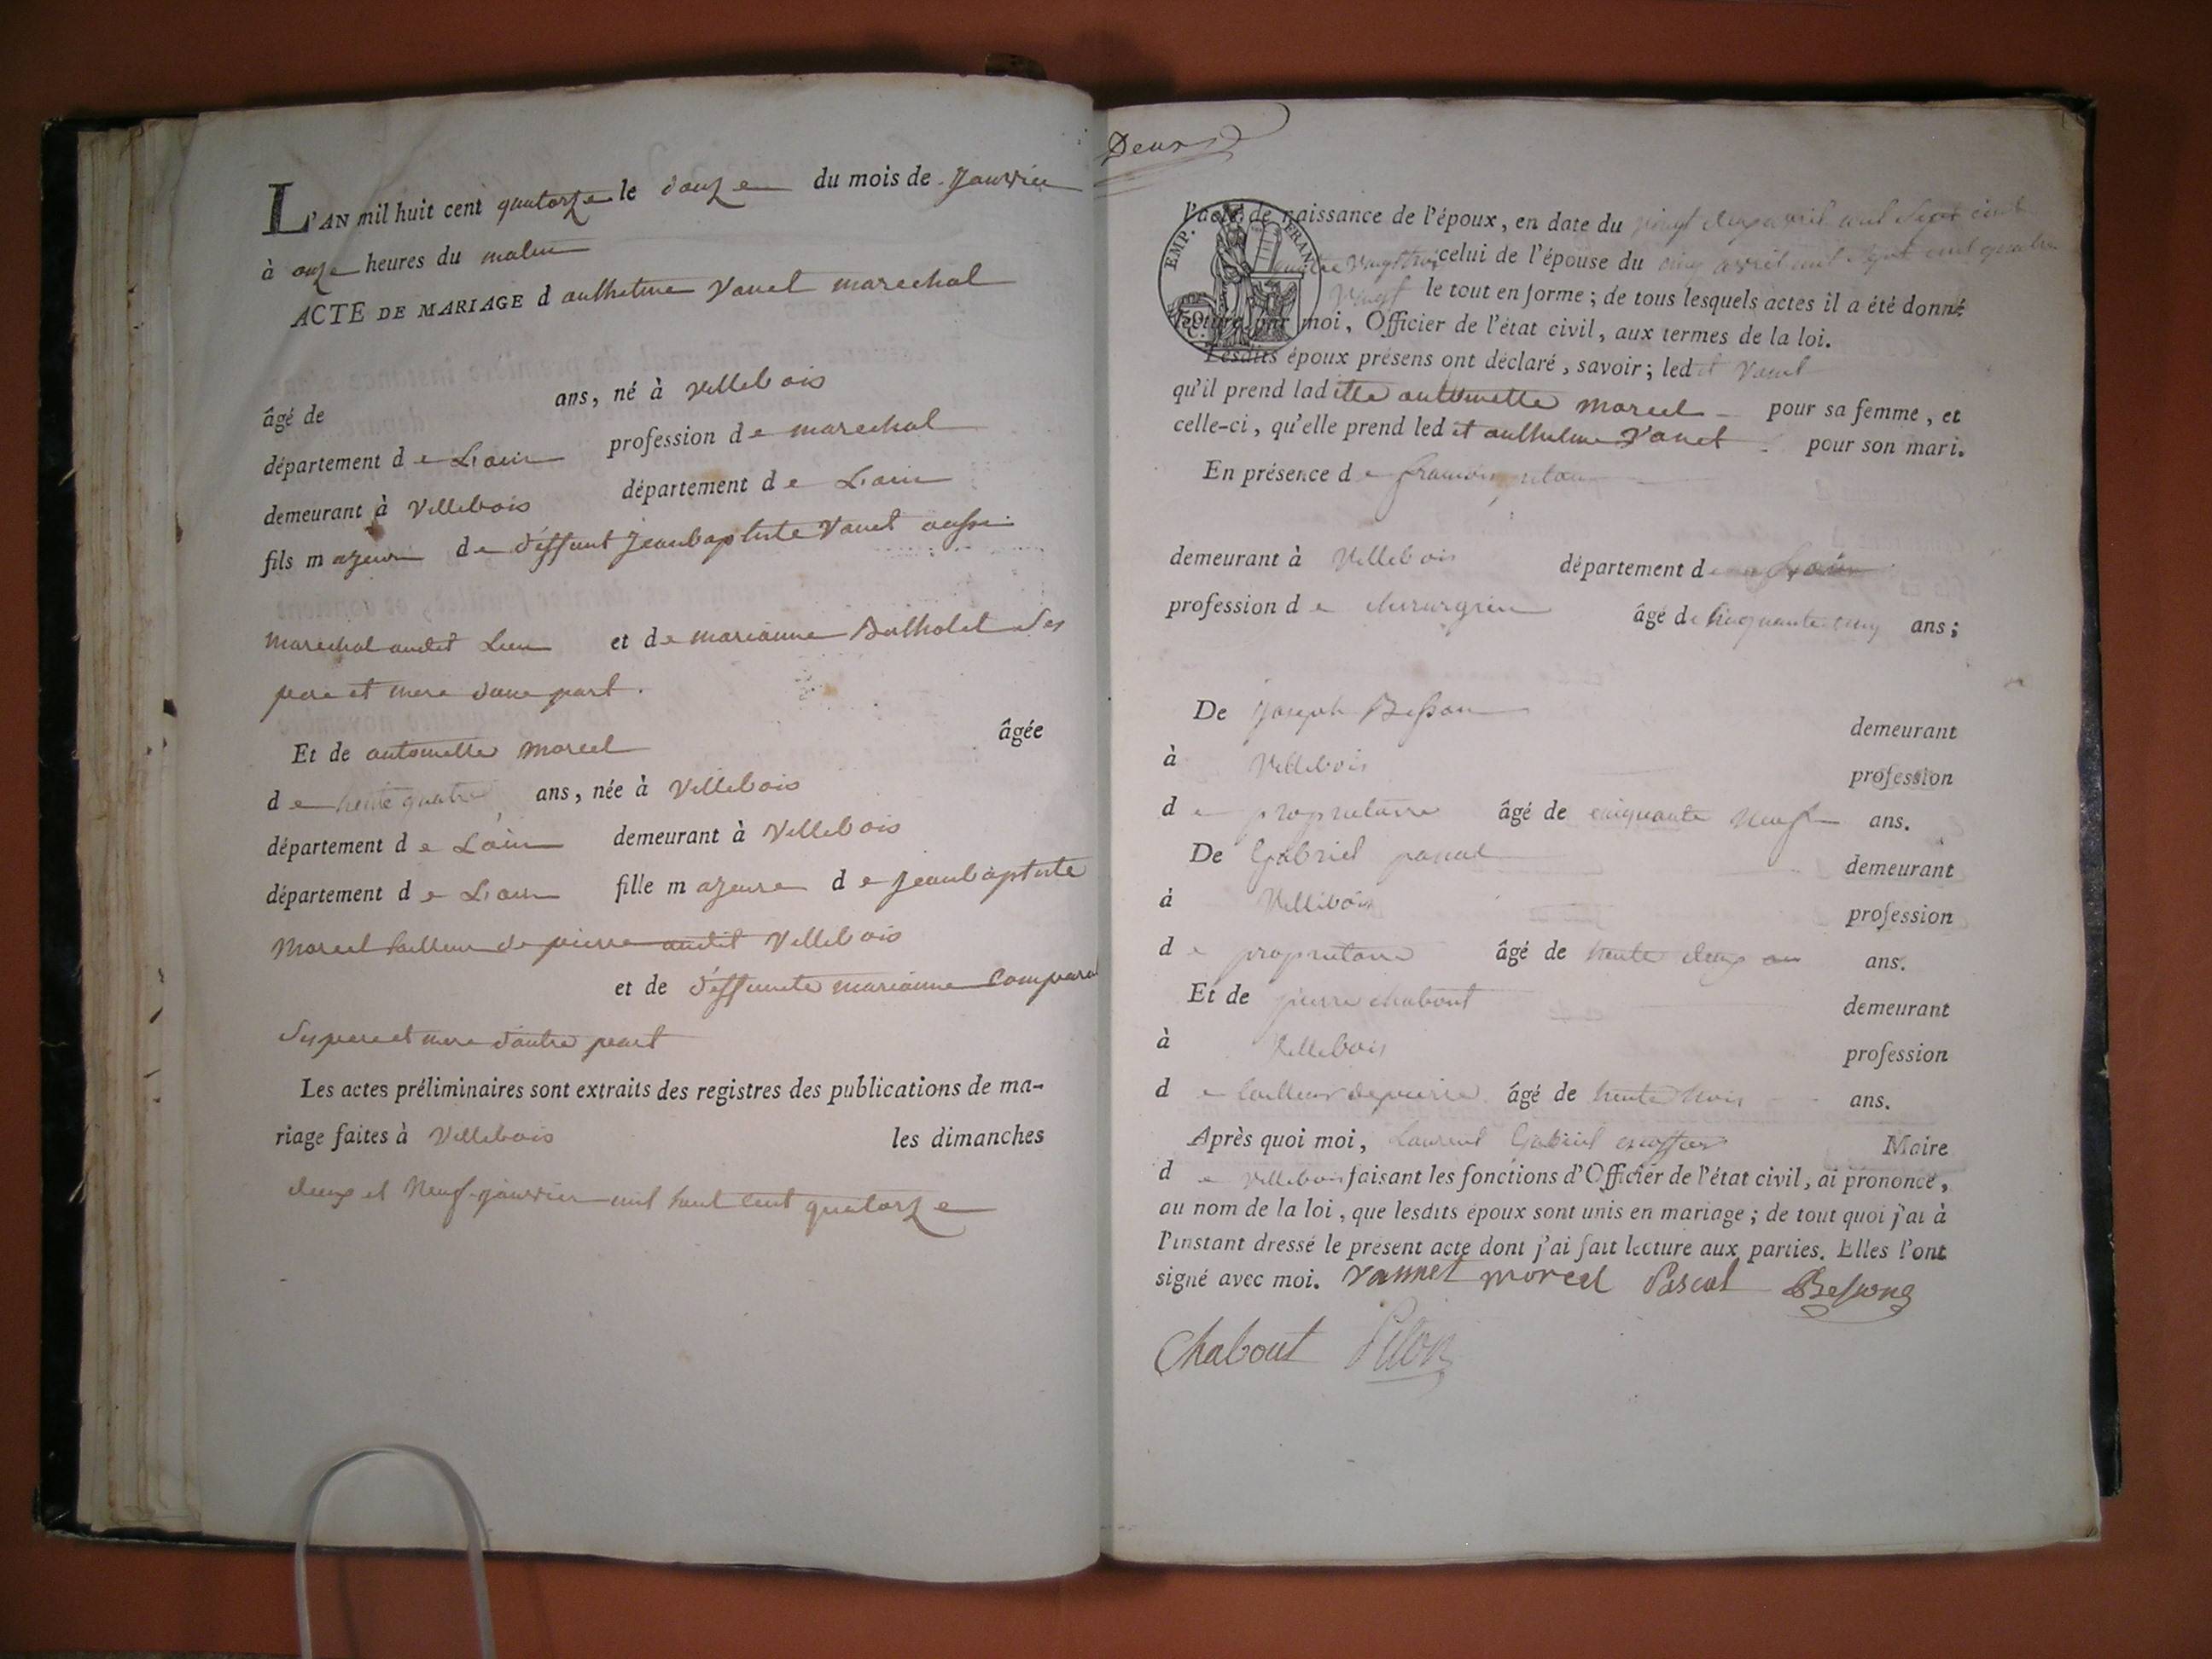 L'AN mil huit cent quatorze le douze du mois de Janvier
à onze heures du matin
ACTE DE MARIAGE d anthelme Vanet marechal
âgé de ans, né à Villebois
département d e L'ain profession d e marechal
demeurant à Villebois département d e L'ain
fils m ajeur d e déffunt Jeanbaptiste Vanet aussi
marechal audit Lieu et d e marianne Bertholet Ses
pere et mere d'une part.
Et de antoinette morcel âgée
d e trente quatre ans, née à Villebois
département d e L'ain demeurant à Villebois
département d e L'ain fille m ajeure d e Jeanbaptiste
Morcel tailleur de pierre audit Villebois
et de déffunte marianne
Ses pere et mere d'autre part
Les actes préliminaires sont extraits des registres des publications de ma-
riage faites à Villebois les dimanches
deux et Neuf janvier mil huit cent quatorze
Deux
l'acte de naissance de l'époux, en date du vingt deux avril mil Sept cent
quatre vingt trois celui de l'épouse du cinq avril mil Sept cent quatre
vingt le tout en forme ; de tous lesquels actes il a été donné
lecture par moi, Officier de l'état civil, aux termes de la loi.
EMP. FRAN.
50 C.
Lesdits époux présens ont déclaré, savoir ; led it Vanet
qu'il prend lad itte antoinette morcel pour sa femme, et
celle-ci, qu'elle prend led it anthelme Vanet pour son mari.
En présence d e francois pilon
demeurant à Villebois département d e L'ain
profession d e chirurgien âgé de cinquante cinq ans ;
De Joseph Besson demeurant
à Villebois profession
d e proprietaire âgé de cinquante Neuf ans.
De Gabriel pascal demeurant
à Villebois profession
d e proprietaire âgé de trente deux ans.
Et de pierre chabout demeurant
à Villebois profession
d e tailleur de pierre âgé de trente trois ans.
Après quoi moi, Laurent Gabriel Maire
d e villebois faisant les fonctions d'Officier de l'état civil, ai prononcé,
au nom de la loi, que lesdits époux sont unis en mariage ; de tout quoi j'ai à
l'instant dressé le présent acte dont j'ai fait lecture aux parties. Elles l'ont
signé avec moi. Vannet morcel Pascal Besson
Chabout Pilon